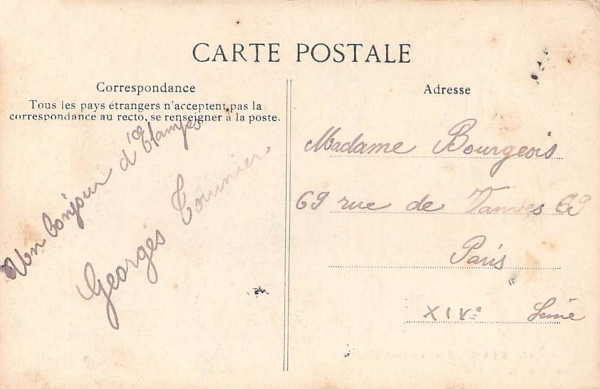 CARTE POSTALE
Correspondance
Tous les pays étrangers n'acceptent pas la
correspondance au recto, se renseigner à la poste.
Un bonjour d'Etampes
Georges Tournier
Adresse
Madame Bourgeois
69 rue de Vanves 69
Paris
XIVe Seine